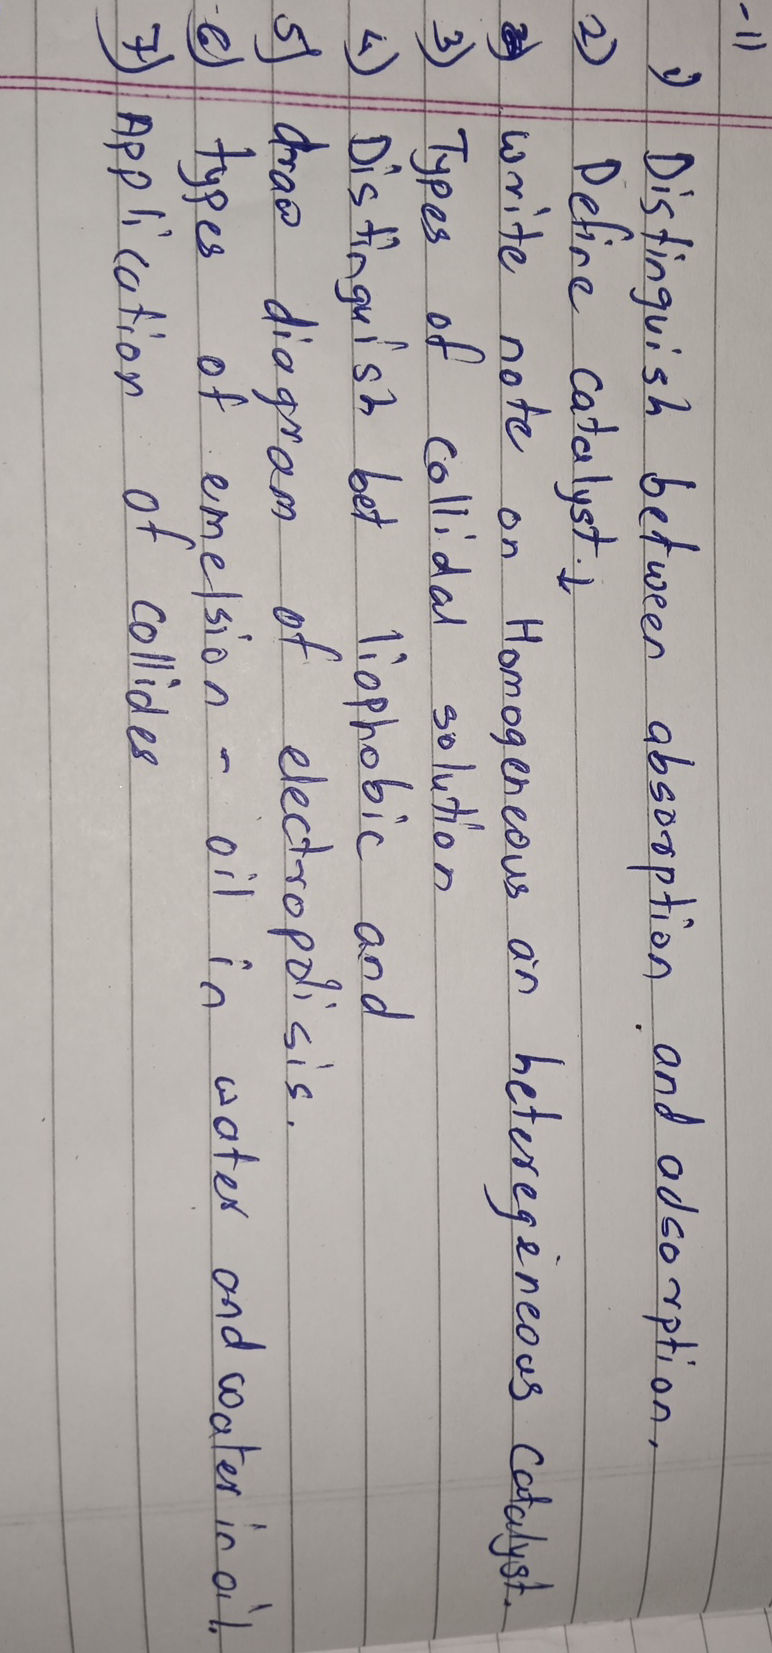 -11
1) Distinguish between absorption and adsorption,
2) Define catalyst.
write note on Homogeneous an heteregeneous catalyst.
3) Types of collidal solution
4) Distinguish bet liophobic and
5) draw diagram of electropolisis.
6) types of emelsion - oil in water and water in oil.
7) Application of collides